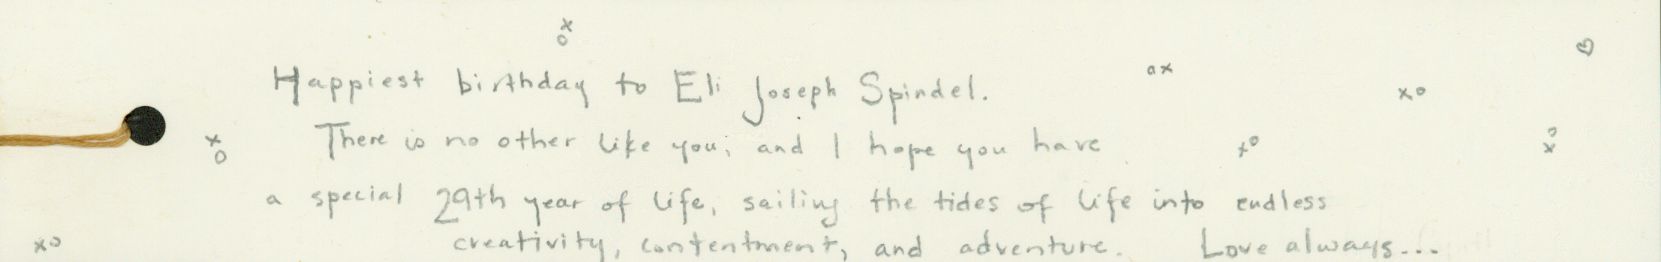 x
o
Happiest birthday to Eli Joseph Spindel.
ox
xo
x
o
There is no other like you, and I hope you have
xo
o
x
a special 29th year of life, sailing the tides of life into endless
xo
creativity, contentment, and adventure. Love always...